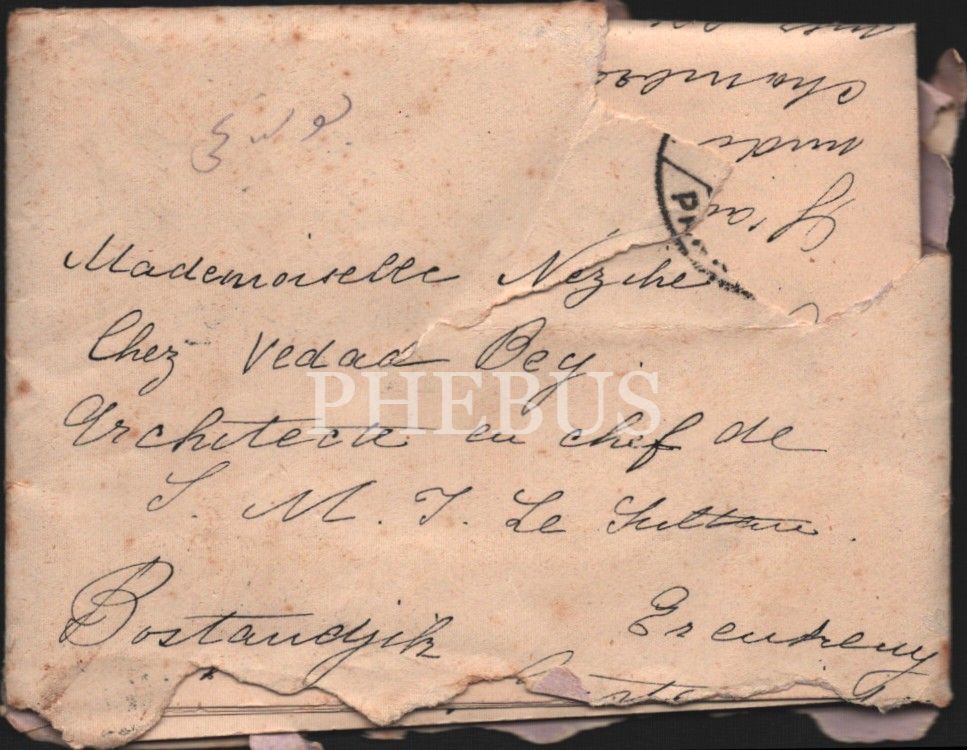 Mademoiselle Nezihe
Chez Vedad Bey.
Architecte en chef de
S. M. I. Le Sultan.
Bostandjik Erenkeuy
PHEBUS
chambre